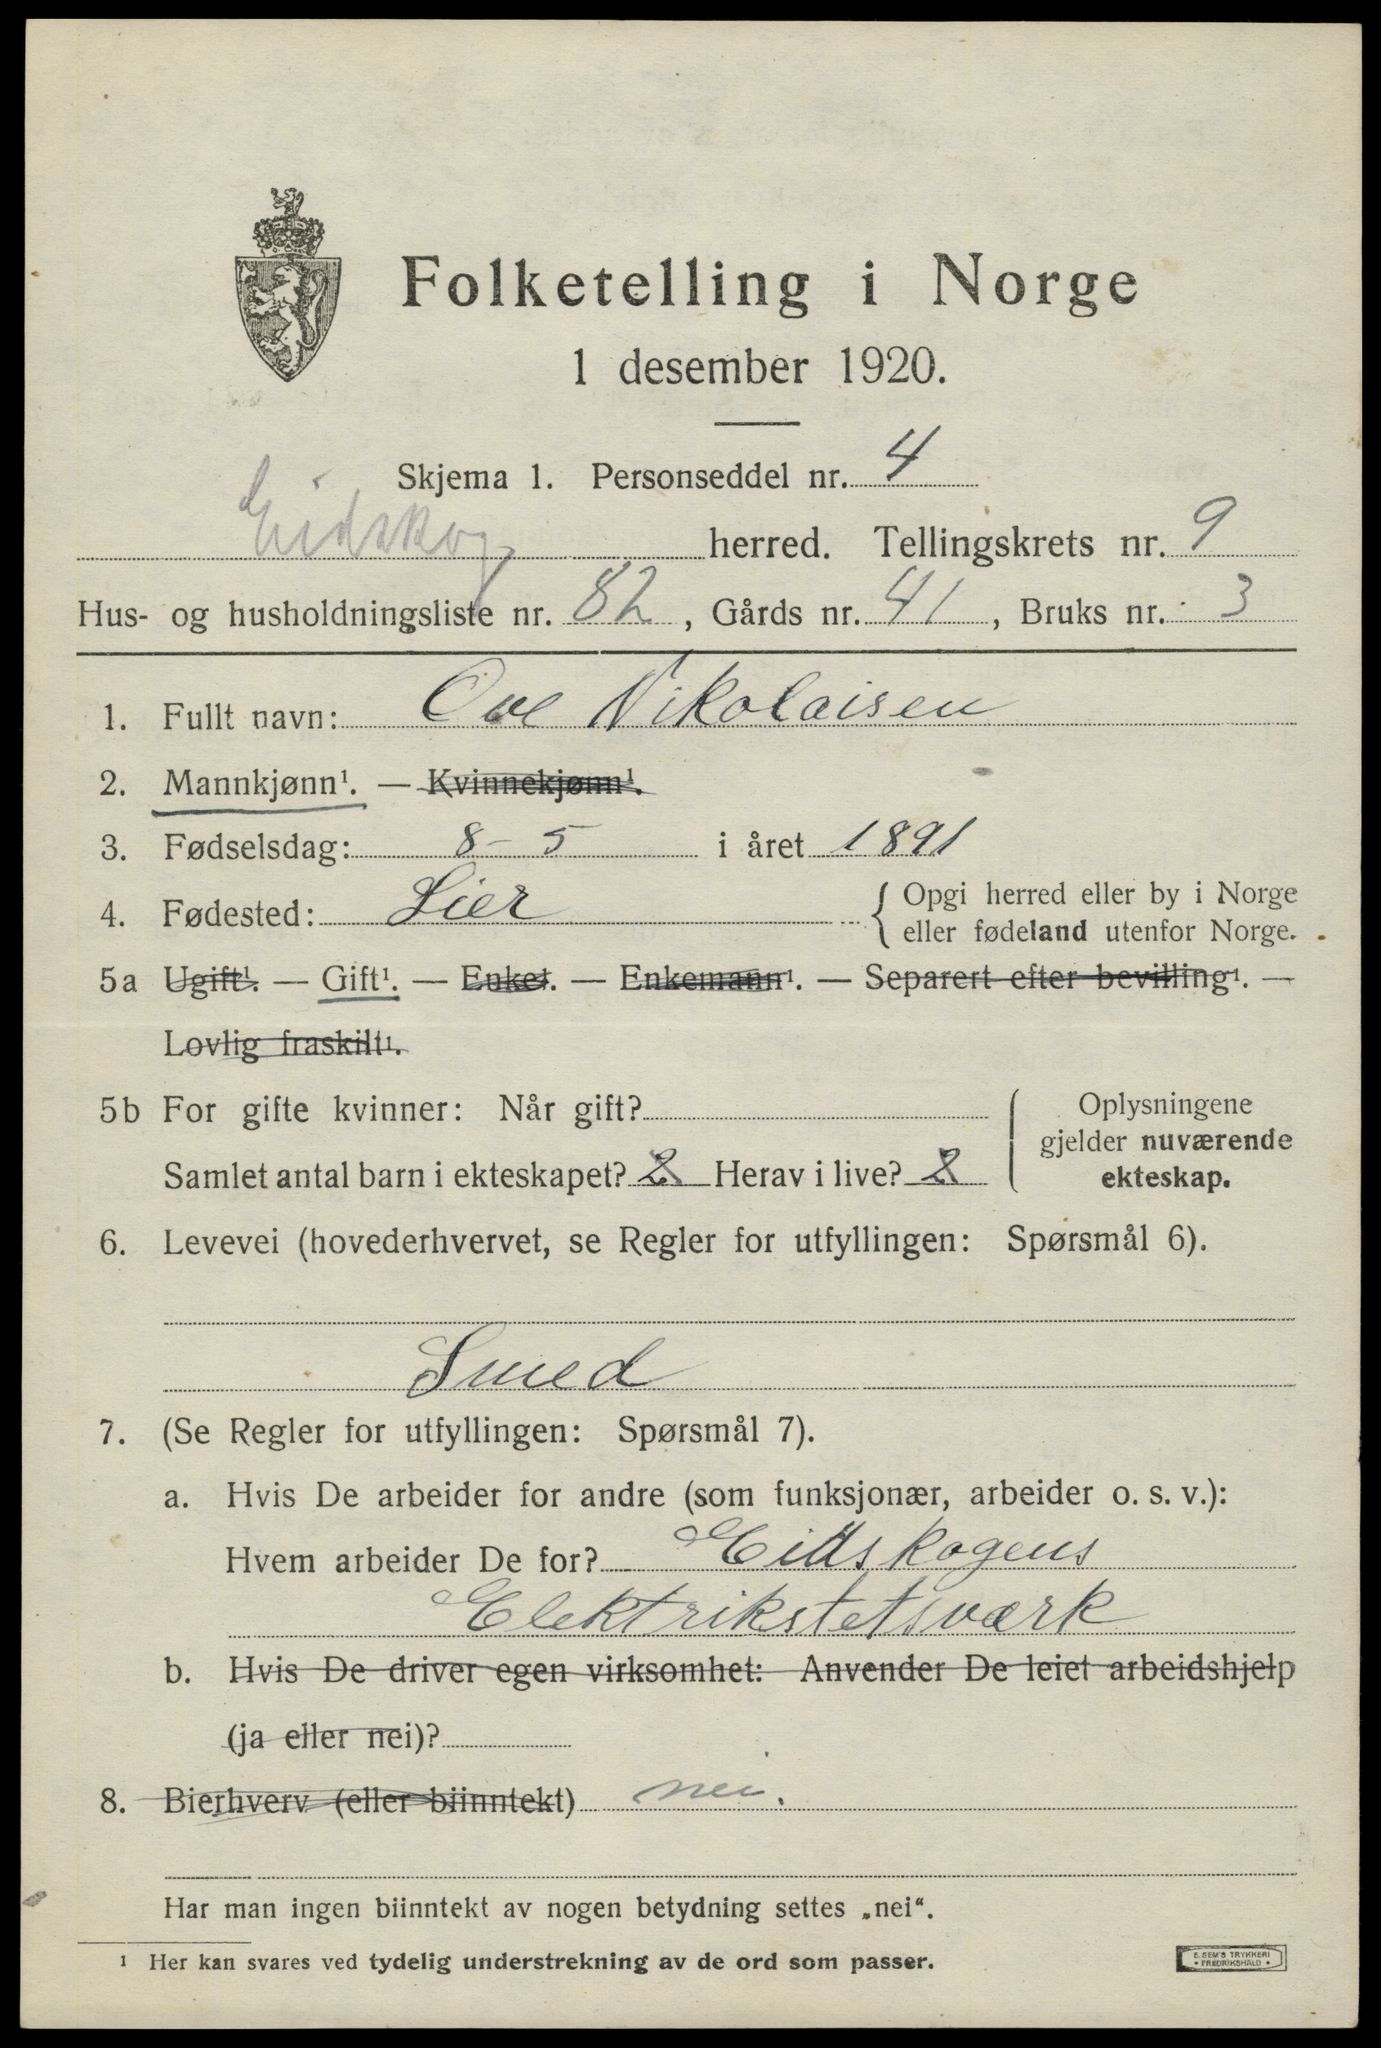 Folketelling i Norge
1 desember 1920.
Skjema 1. Personseddel nr. 4
Eidskog herred. Tellingskrets nr. 9
Hus- og husholdningsliste nr. 82, Gårds nr. 41, Bruks nr. 3
1. Fullt navn: Ove Nikolaisen
2. Mannkjønn¹. — Kvinnekjønn¹.
3. Fødselsdag: 8-5 i året 1891
4. Fødested: Lier { Opgi herred eller by i Norge
eller fødeland utenfor Norge.
5a Ugift¹. — Gift¹. — Enket. — Enkemann¹. — Separert efter bevilling¹. —
Lovlig fraskilt¹.
5b For gifte kvinner: Når gift?
Samlet antal barn i ekteskapet? 2 Herav i live? 2
Oplysningene
gjelder nuværende
ekteskap.
6. Levevei (hovederhvervet, se Regler for utfyllingen: Spørsmål 6).
Smed
7. (Se Regler for utfyllingen: Spørsmål 7).
a. Hvis De arbeider for andre (som funksjonær, arbeider o. s. v.):
Hvem arbeider De for? Eidskogens
Elektrikstetsværk
b. Hvis De driver egen virksomhet: Anvender De leiet arbeidshjelp
(ja eller nei)?
8. Bierhverv (eller biinntekt) nei.
Har man ingen biinntekt av nogen betydning settes „nei“.
¹ Her kan svares ved tydelig understrekning av de ord som passer.
E. SEM'S TRYKKERI
• FREDRIKSHALD •